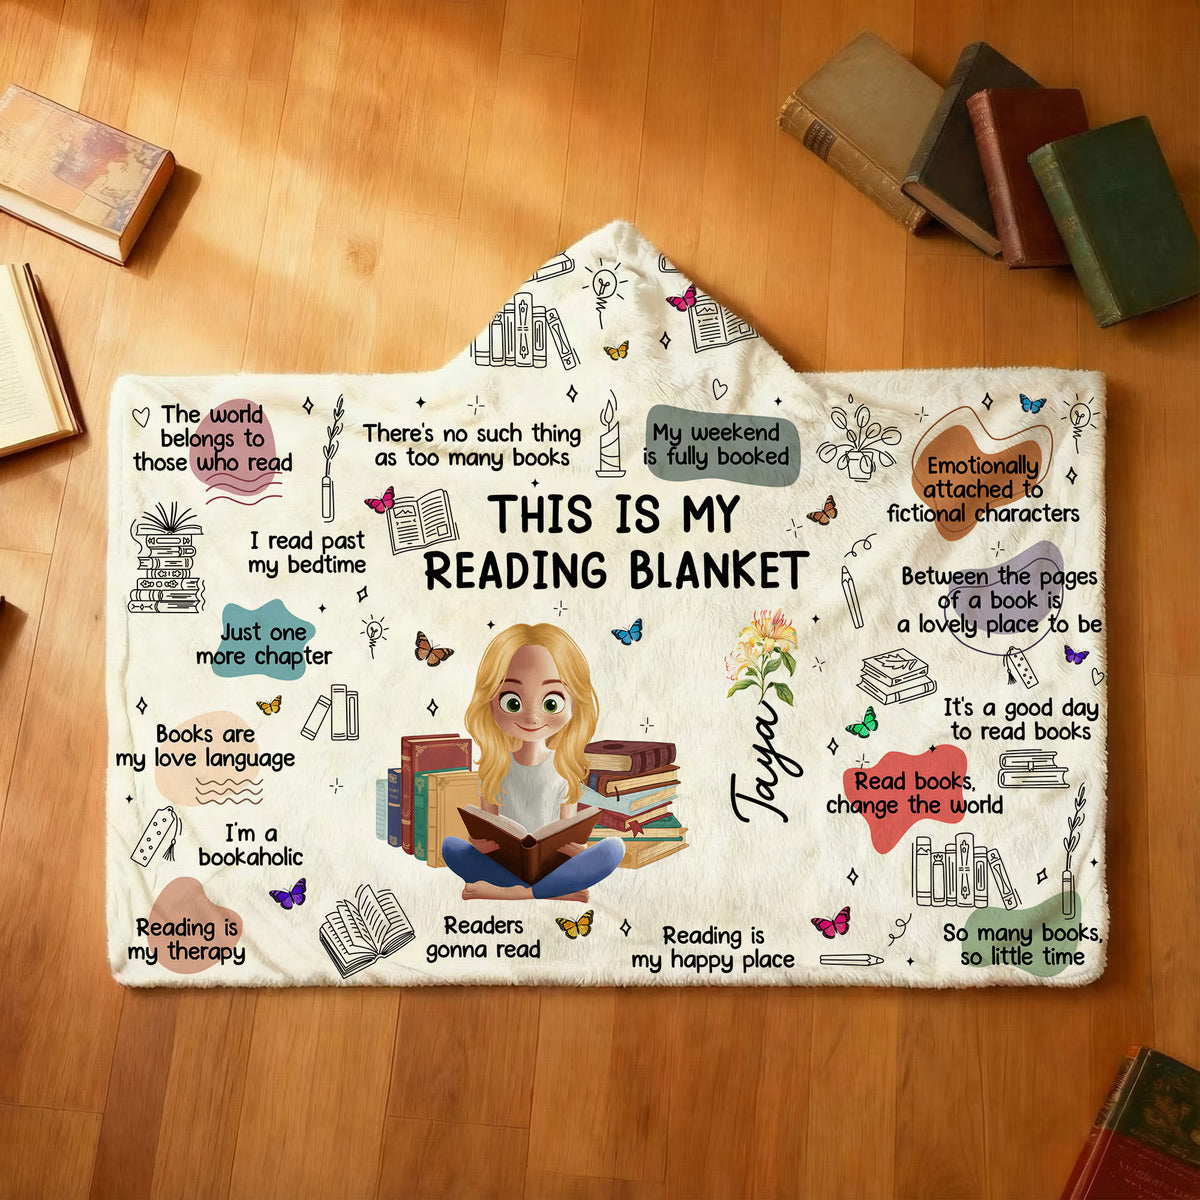 The world
belongs to
those who read
There's no such thing
as too many books
My weekend
is fully booked
Emotionally
attached to
fictional characters
THIS IS MY
READING BLANKET
I read past
my bedtime
Between the pages
of a book is
a lovely place to be
Just one
more chapter
Taya
It's a good day
to read books
Books are
my love language
Read books,
change the world
I'm a
bookaholic
Reading is
my therapy
Readers
gonna read
Reading is
my happy place
So many books,
so little time